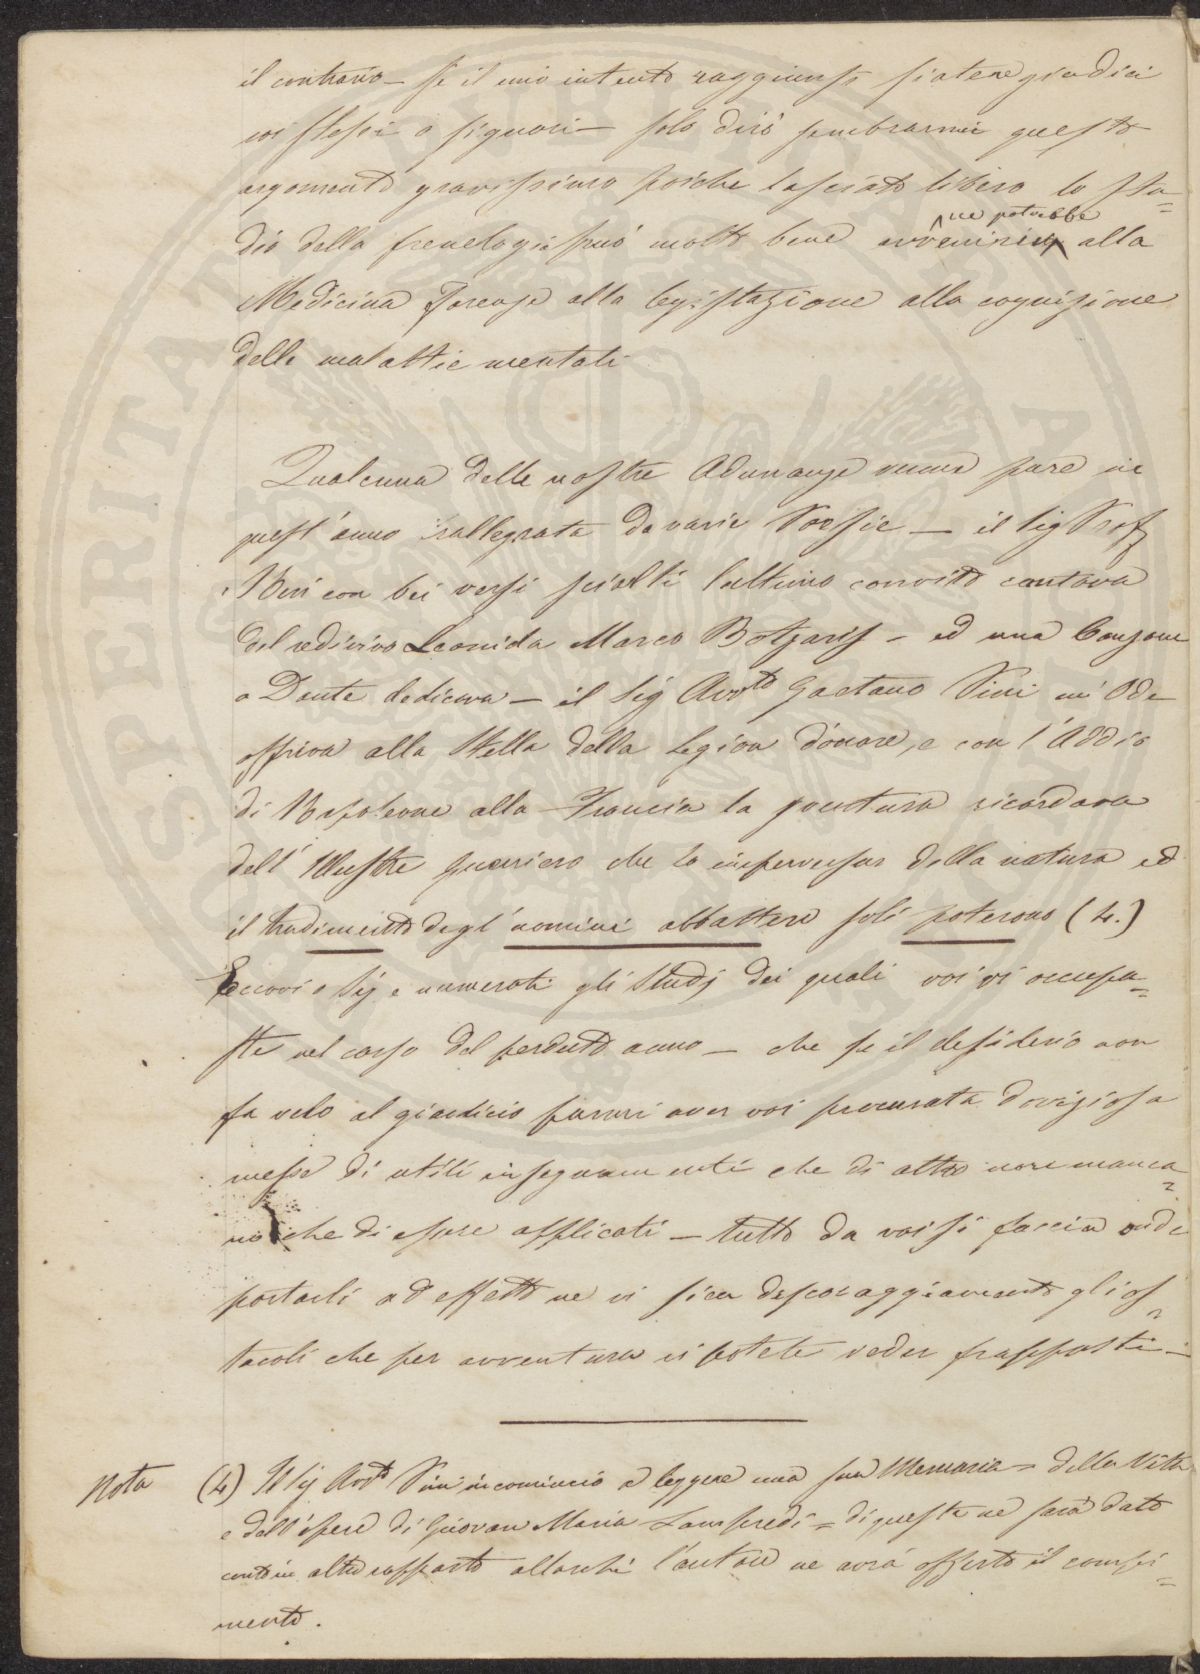 il contrario – se il mio intento raggiunsi siatene giudici
voi stessi o signori – solo dirò sembrarmi questo
argomento gravissimo poiche lasciato libero lo stu=
ne potrebbe
dio della frenologia può molto bene avvenire alla
Medicina Forense alla legislazione alla cognizione
delle malattie mentali
Qualcuna delle nostre Adunanze venne pure in
quest'anno rallegrata da varie Poesie – il Sig Prof
Neri con bei versi sciolti l'ultimo convito cantava
del redivivo Leonida Marco Botzaris – ed una Canzone
a Dante dedicava – il Sig Avvto Gaetano Pini un'Ode
offriva alla Stella della Legion d'onore, e con l'Addio
di Napoleone alla Francia la sventura ricordava
dell'Illustre guerriero che la imperversar della natura ed
il tradimento degl'uomini abbattere soli poterono (4.)
Eccovi o Sig enumerati gli Studj dei quali voi vi occupa=
ste nel corso del perduto anno – che se il desiderio non
fa velo al giudicio parmi aver voi procurata doviziosa
messe di utili insegnamenti che di altro non manca=
no che di essere applicati – tutto da voi si faccia onde
portarli ad effetto ne vi sien descoraggiamento gli os=
tacoli che per avventura vi potete veder frapposti –
Nota (4) Il Sig Avvto Pini incominciò a leggere una sua Memoria = della Vita
e dell'opere di Giovan Maria Lampredi = di queste ne sarà dato
conto in altro rapporto allorchè l'autore ne avrà offerto il compi=
mento.